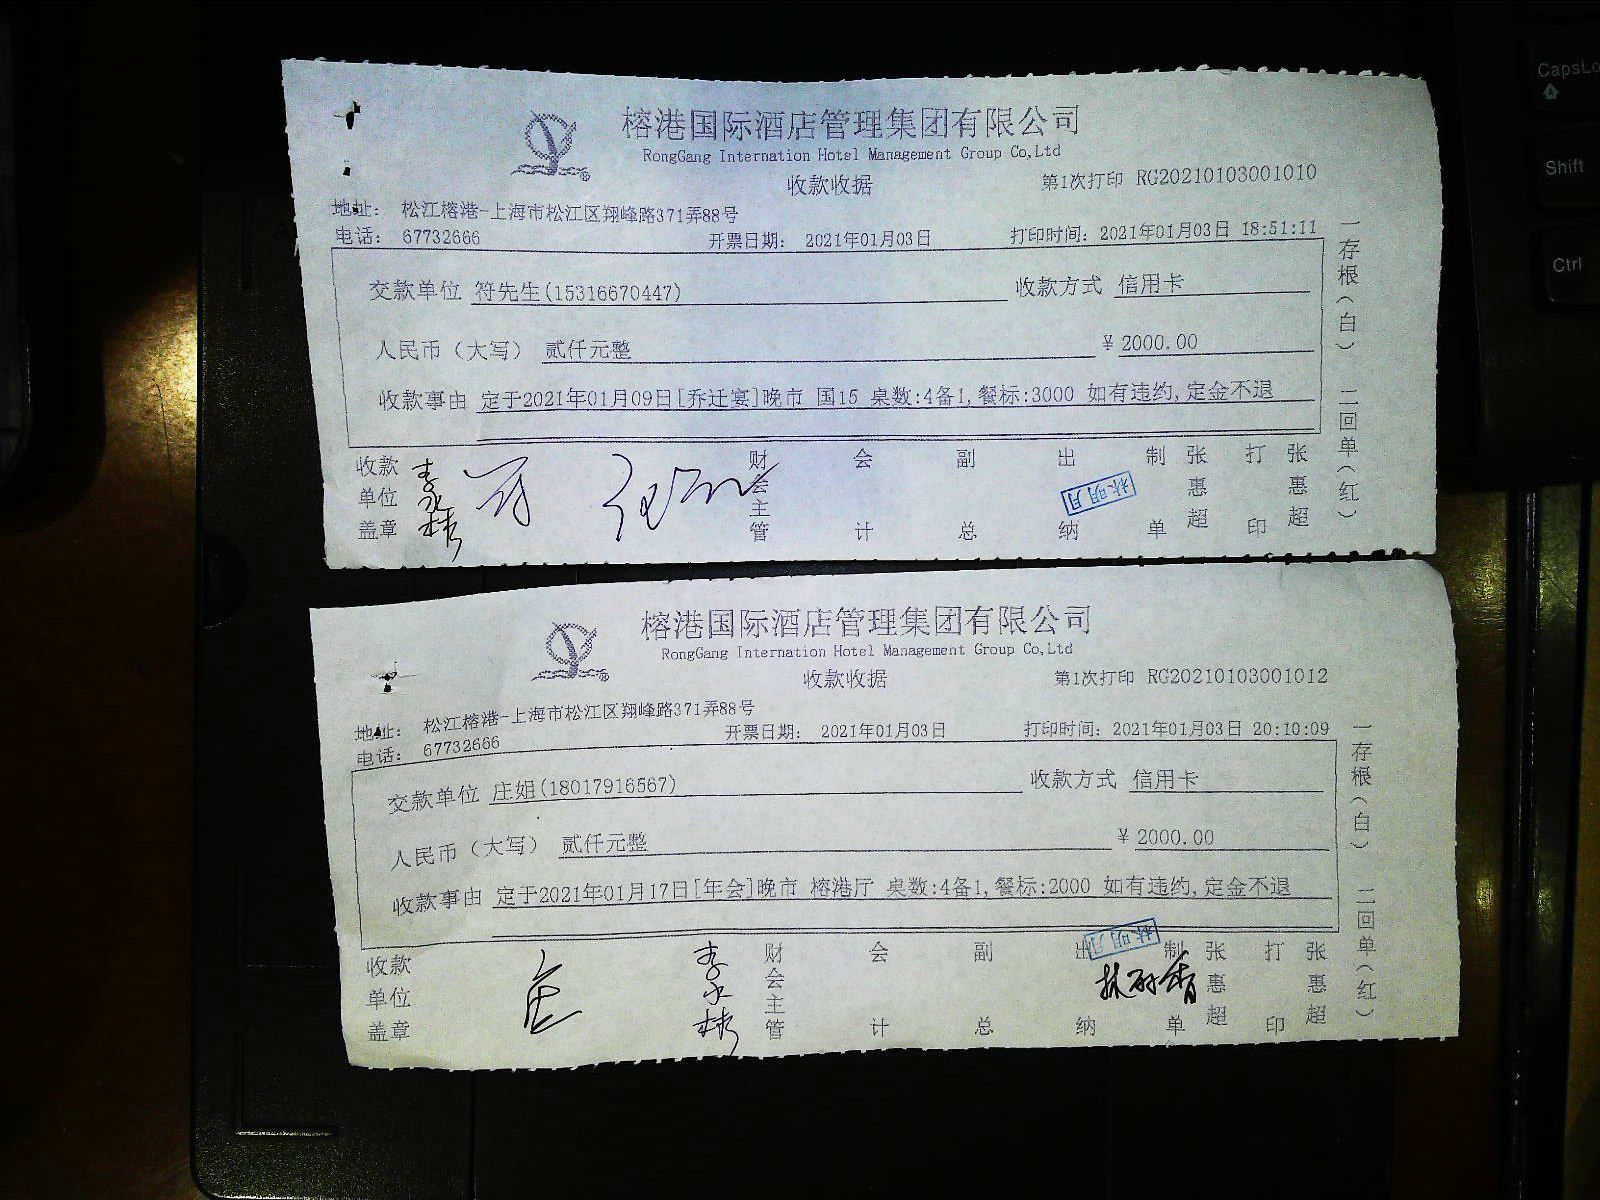 榕港国际酒店管理集团有限公司
RongGang Internation Hotel Management Group Co,Ltd
收款收据
第1次打印 RG20210103001010
地址: 松江榕港-上海市松江区翔峰路371弄88号
电话: 67732666 开票日期: 2021年01月03日 打印时间: 2021年01月03日 18:51:11
交款单位 符先生(15316670447) 收款方式 信用卡
人民币（大写） 贰仟元整 ¥ 2000.00
收款事由 定于2021年01月09日[乔迁宴]晚市 国15 桌数:4备1,餐标:3000 如有违约,定金不退
收款单位盖章 李永林 财会主管 会计 副总 出纳 林明月 制单 张惠超 打印 张惠超
一存根（白） 二回单（红）
榕港国际酒店管理集团有限公司
RongGang Internation Hotel Management Group Co,Ltd
收款收据
第1次打印 RG20210103001012
地址: 松江榕港-上海市松江区翔峰路371弄88号
电话: 67732666 开票日期: 2021年01月03日 打印时间: 2021年01月03日 20:10:09
交款单位 庄姐(18017916567) 收款方式 信用卡
人民币（大写） 贰仟元整 ¥ 2000.00
收款事由 定于2021年01月17日[年会]晚市 榕港厅 桌数:4备1,餐标:2000 如有违约,定金不退
收款单位盖章 李永林 财会主管 会计 副总 出纳 林明月 制单 张惠超 打印 张惠超
一存根（白） 二回单（红）
CapsLo
Shift
Ctrl